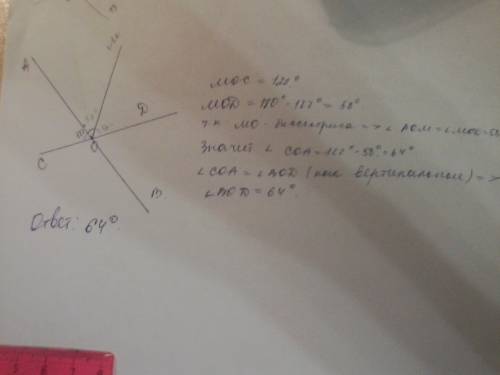 A
D
C
O
B
MOC = 122°
MOD = 180° - 122° = 58°
т.к. MO - биссектриса => ∠ AOM = ∠MOD = 58
Значит ∠ COA = 122° - 58° = 64°
∠COA = ∠AOD (как вертикальные) =>
∠AOD = 64°.
Ответ: 64°.